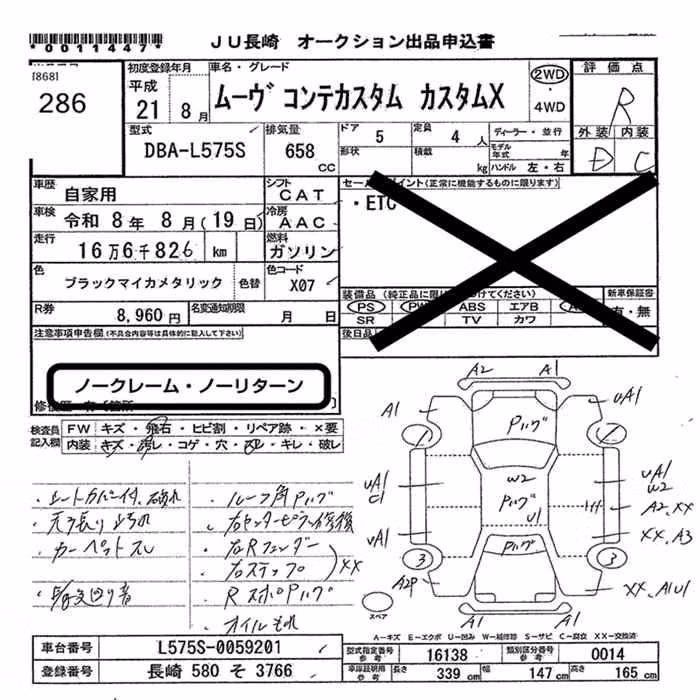 *0011447*
JU長崎 オークション出品申込書
[868]
286
初度登録年月
平成
21 8月
車名・グレード
ムーヴ コンテカスタム カスタムX
2WD
・
4WD
評価点
R
外装 内装
D C
型式
DBA-L575S
排気量
658
CC
ドア
5
形状
定員
4人
積載
kg
ディーラー・並行
モデル年式 年
ハンドル 左・右
車歴
自家用
シフト
CAT
車検
令和 8年 8月(19日)
冷房
AAC
走行
16万6千826 km
燃料
ガソリン
色
ブラックマイカメタリック
色替
色コード
X07
R券
8,960円
名変通知期限
月 日
セールスポイント(正常に機能するものに限ります)
・ETC
装備品
PS
ABS
エアB
SR
TV
カワ
新車保証書
有・無
後日品
注意事項申告欄(不具合内容等は具体的に記入して下さい)
ノークレーム・ノーリターン
検査員記入欄
FW キズ・飛石・ヒビ割・リペア跡・×要
内装 キズ・汚レ・コゲ・穴・スレ・キレ・破レ
・シートカバー付、破れ
・天張り汚れ
・カーペットスレ
・ルーフ角Pハゲ
・右センターピラー修復
・右Rフェンダー
・右ステップ
XX
・RスポPハゲ
・オイルもれ
A2 A1
A1
uA1
Pハゲ
uA1
C1
W2
Pハゲ
U1
uA1
W2
A2,XX
uA1
XX、A3
Pハゲ
3
3
A2P
XX、A1U1
A1 A1
スペア
A-キズ E-エクボ U-凹み W-補修跡 S-サビ C-腐食 XX-交換済
車台番号
L575S-0059201
登録番号
長崎 580 そ 3766
型式指定番号
参考
16138
類別区分番号
参考
0014
車庫証明用
参考
長さ
339 cm
幅
147 cm
高さ
165 cm